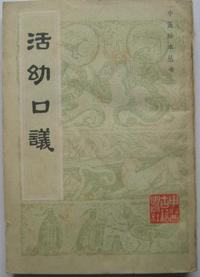 中医珍本丛书
活幼口議